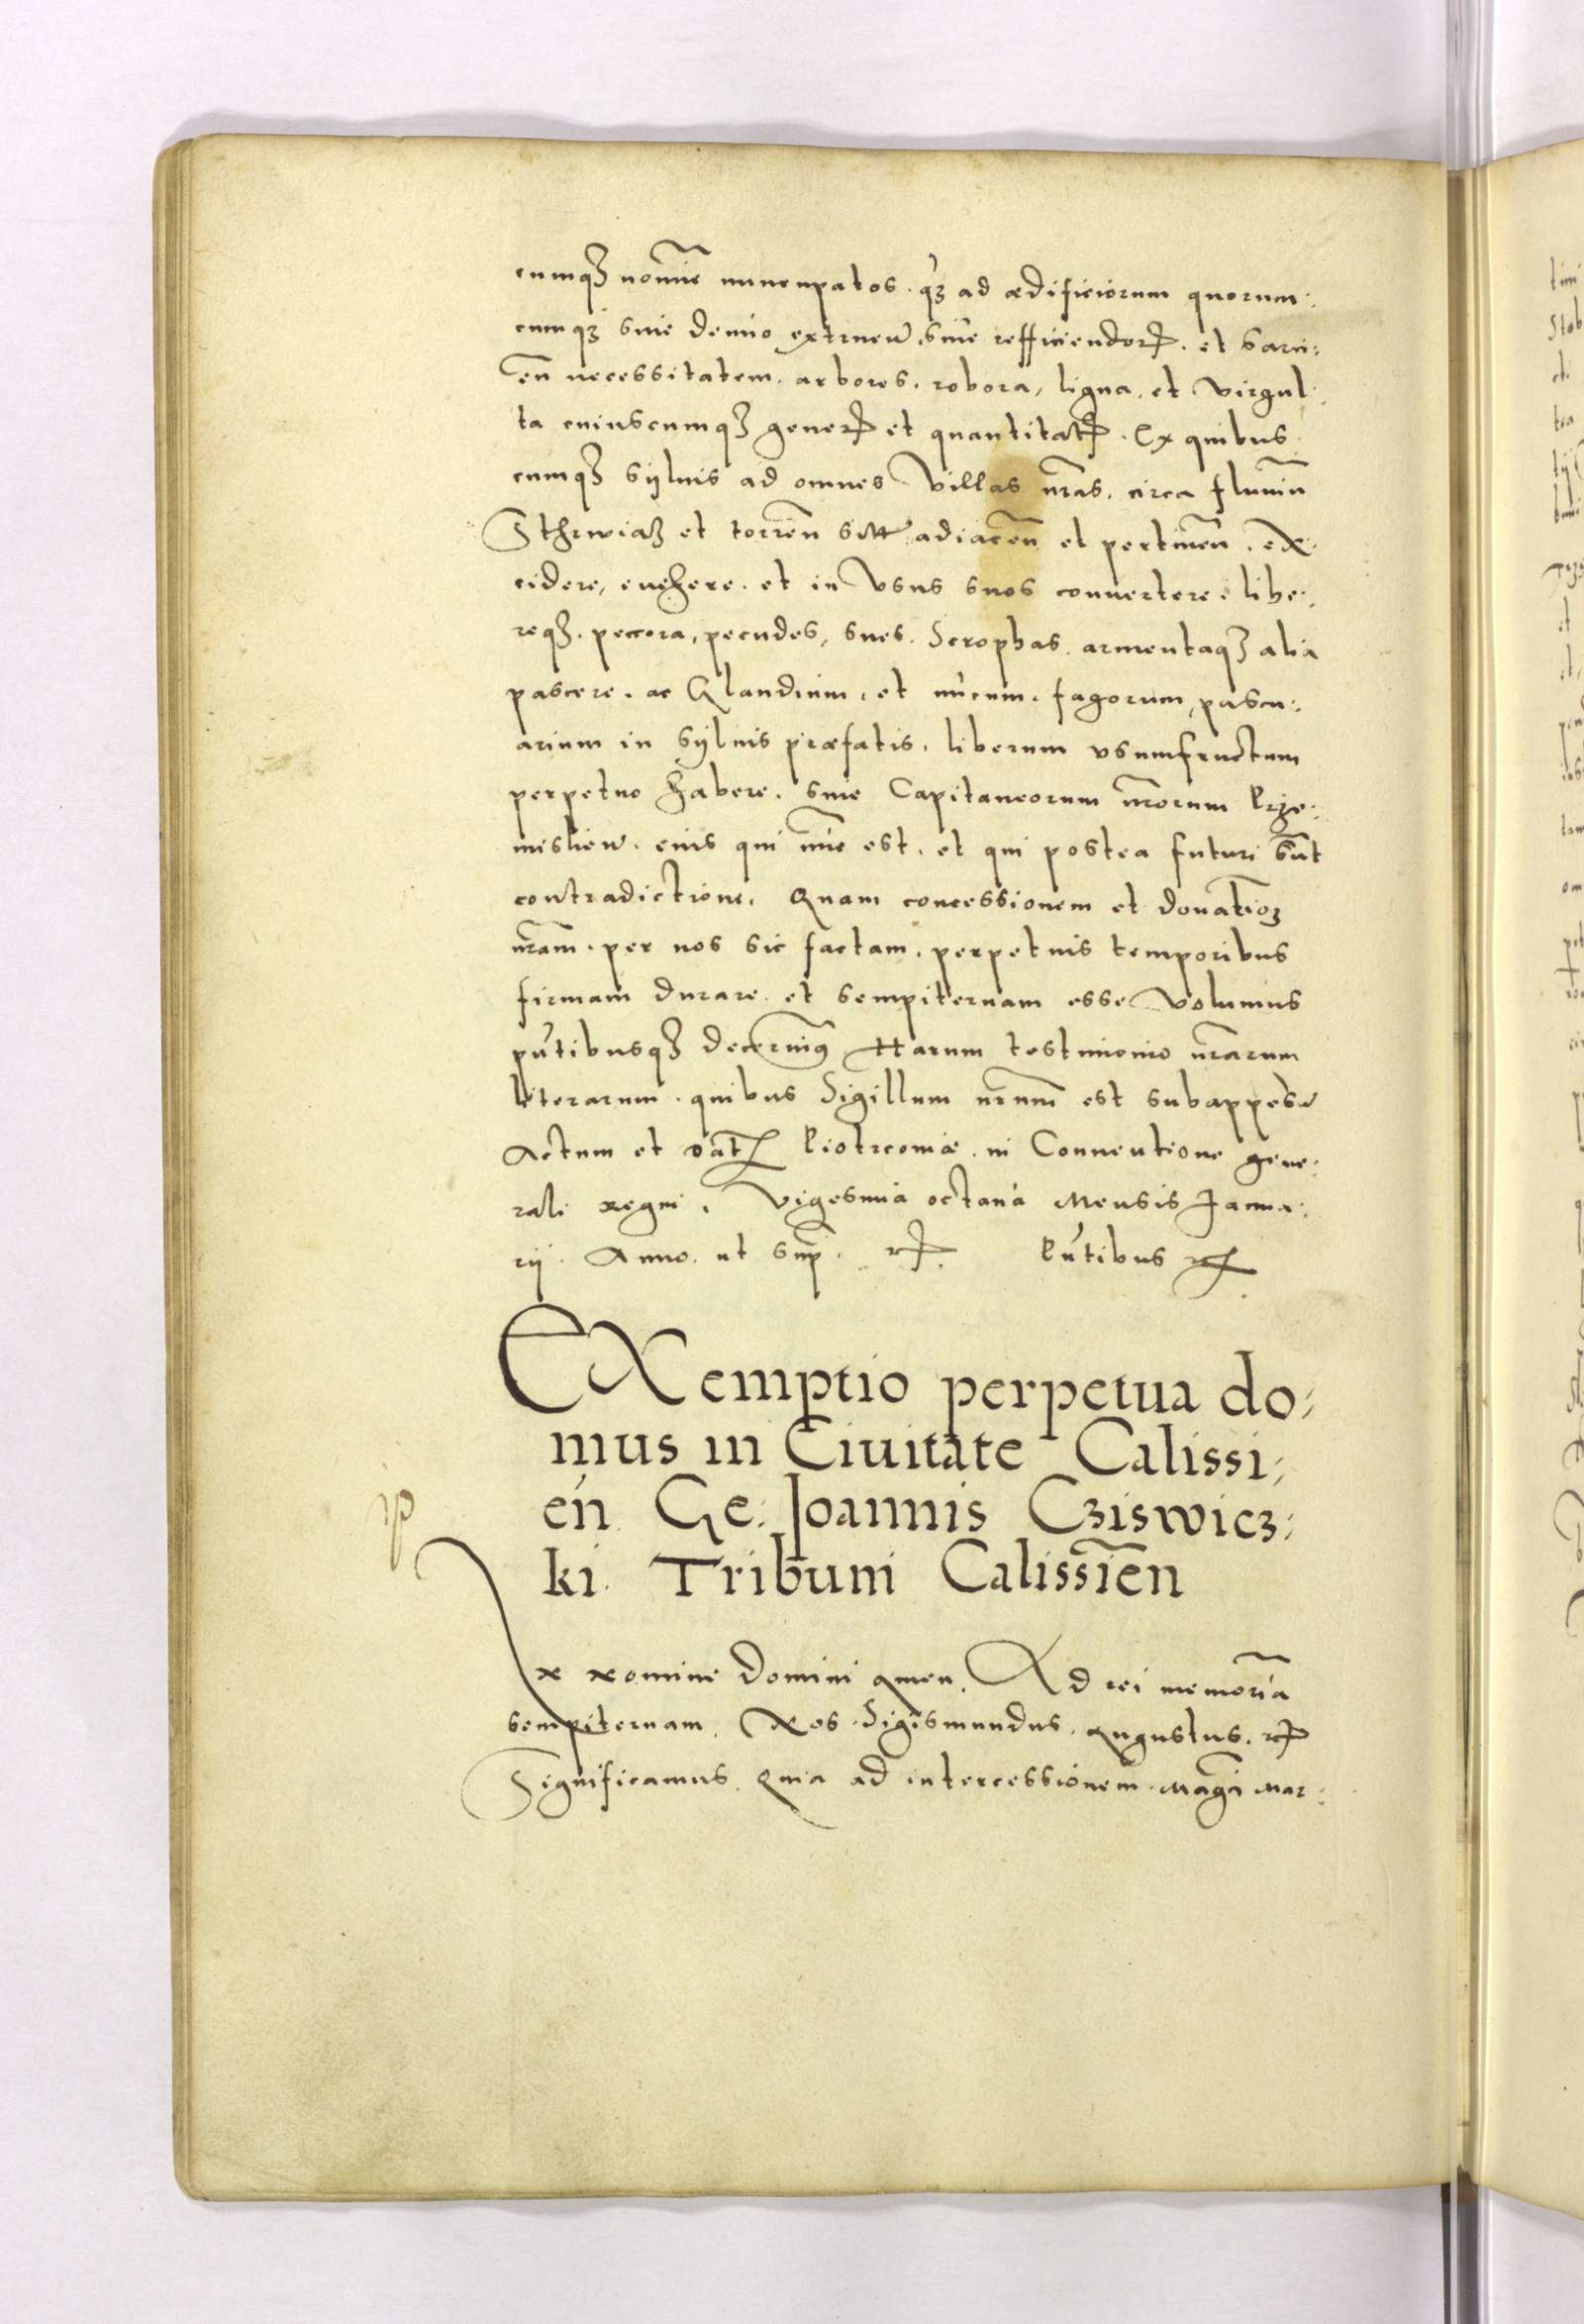 cumqꝫ nom̃ie nuncupatos. q̃ꝫ ad ædificiorum quorum:
cumqꝫ siue denuo extruen̄. siue refficiendorꝝ. et sarci:
en̄ necessitatem. arbores. robora, ligna. et virgul:
ta cuiuscumqꝫ generꝭ et quantitatꝭ. Ex quibus
cumqꝫ syluis ad omnes Villas nr̃as. circa fluuiũ
Sthrwiaz et torren̄ sitt̃ adiacen̄ et pertinen̄. ex:
cidere, euehere. et in Vsus suos conuertere. libe:
reqꝫ. peccora, pecudes, sues. Scrophas. armentaqꝫ alia
pascere. ac Glandium. et nucum. fagorum, pascu:
arium in syluis præfatis. liberum vsumfructum
perpetuo habere. sine Capitaneorum nr̃orum Prze:
mislien̄. eius qui nũc est. et qui postea futuri sũt
contradictione. Quam concessionem et donatioꝫ
nr̃am. per nos sic factam. perpetuis temporibus
firmam durare. et sempiternam esse Volumus
pñtibusqꝫ decernim⁹ Harum testimonio nr̃arum
literarum. quibus Sigillum nr̃um est subappeñ
Actum et Dat̃ Piotrcouiæ. in Conuentione gene:
rali regni. Vigesima octaua Mensis Janua:
rij. Anno. ut sup̃. ꝛꝭ. Pñtibus ꝛꝭ.
EXemptio perpetua do:
mus in Ciuitate Calissi:
en̄. Ge: Joannis Cziswicz:
ki. Tribuni Calissien̄
In nomine Domini Amen. Ad rei memoriã
sempiternam. Nos Sigismundus. Augustus. ꝛꝭ
Significamus. Quia ad intercessionem. Mag̃ci Mar: